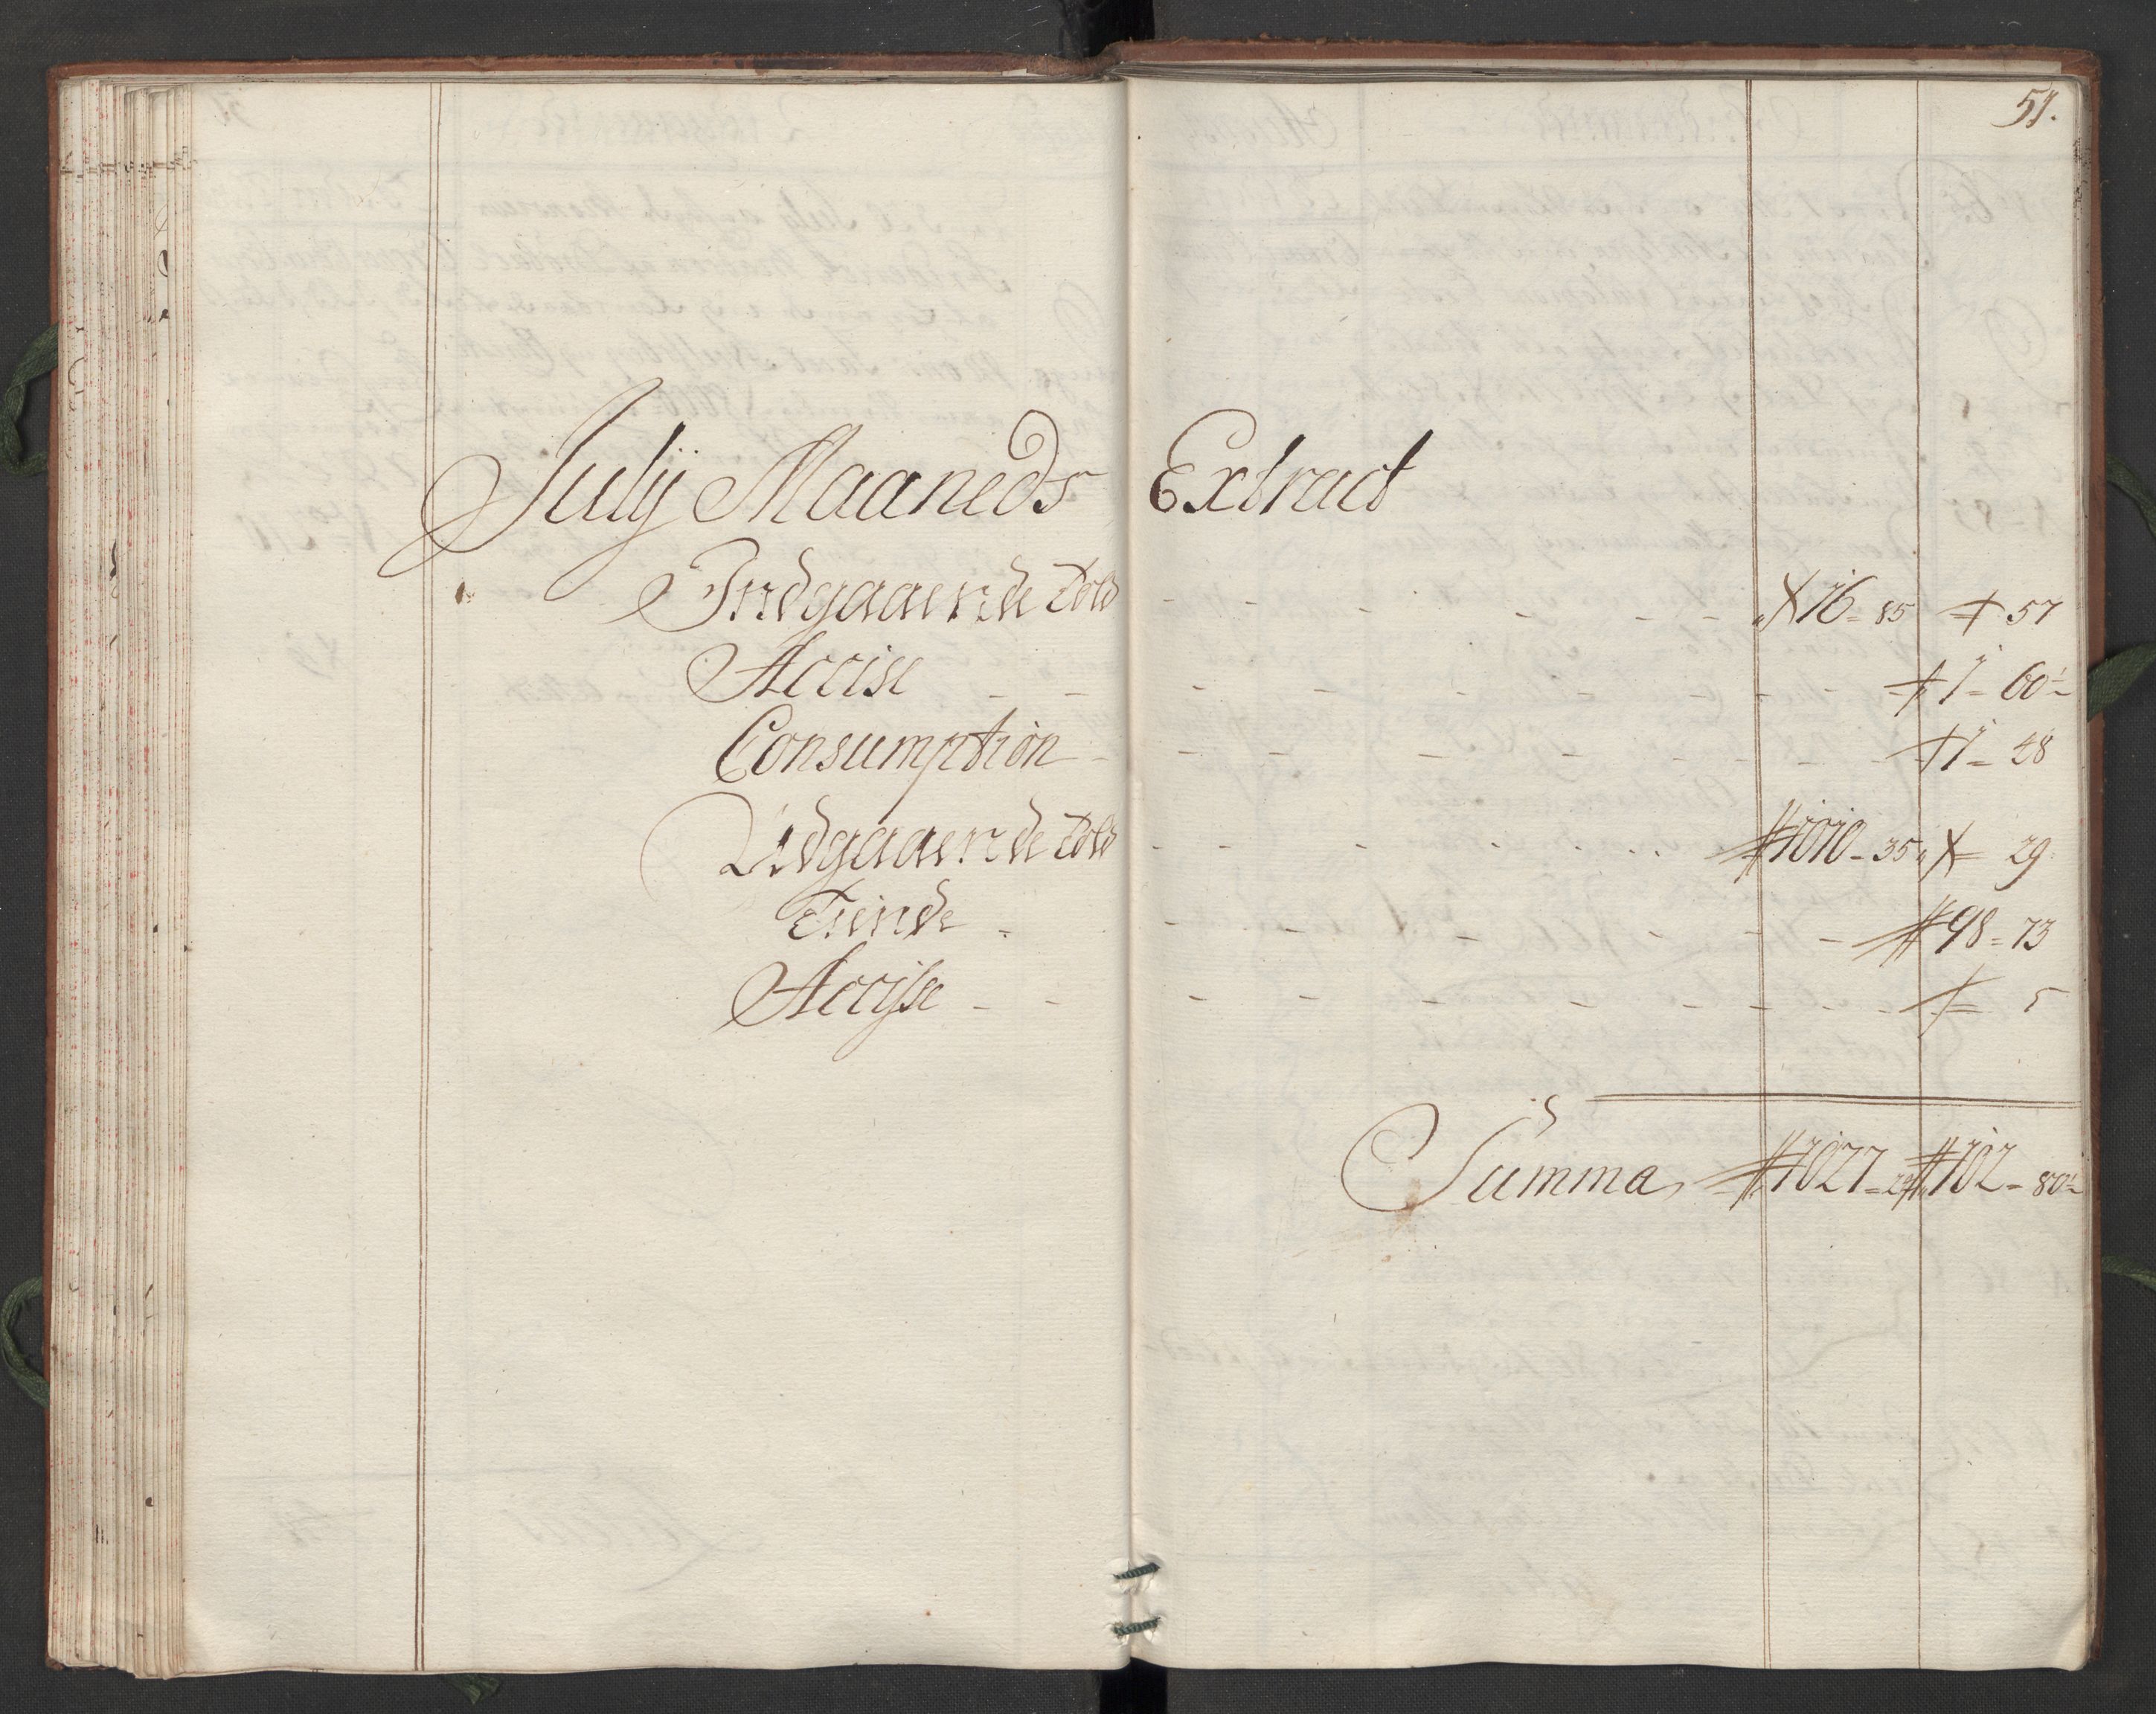 51.
Julij Maaneds Extract
Indgaaende Told - - - - - - - 16 = 85 57
Accise - - - - - - - - - 1 = 60½
Consumption - - - - - - - - - 1 = 48
Udgaaende Told - - - - - - - 1010 - 35 29
Tiende - - - - - - - 98 = 73
Accise - - - - - - - - - 5
Summa 1027 = 24 102 = 80½